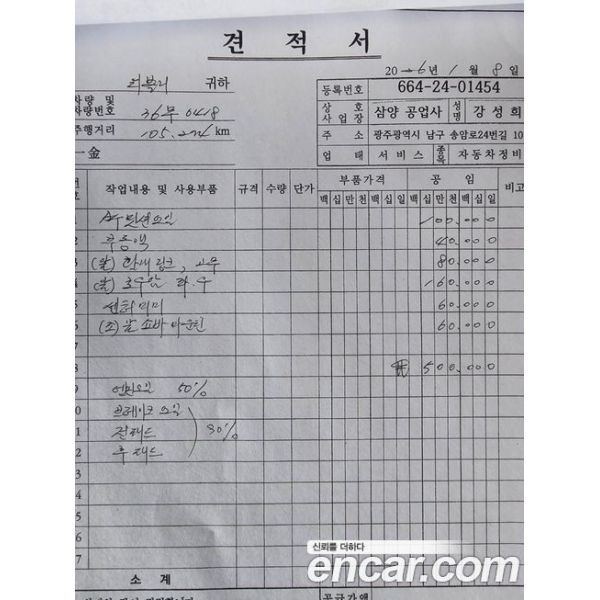 견 적 서
2026년 1 월 8 일
러블리 귀하
등록번호 664-24-01454
차량 및
차량번호 36부0418
상 호
사 업 장 삼양 공업사 성명 강 성 희
주행거리 105.274 km
주 소 광주광역시 남구 송암로24번길 10
一金
업 태 서비스 종목 자동차정비
작업내용 및 사용부품 규격 수량 단가 부품가격 공 임 비고
백 십 만 천 백 십 일 백 십 만 천 백 십 일
1 밋션오일 100.000
2 부동액 40.000
3 (앞) 활대링크, 고무 80.000
4 (앞) 로우암 좌.우 160.000
5 60.000
6 (조) 앞 쇼바 마운틴 60.000
8 ₩ 500.000
9 엔진오일 50%
10 브레이크 오일
11 전 패드 80%
12 후 패드
소 계
공급가액
신뢰를 더하다
encar.com